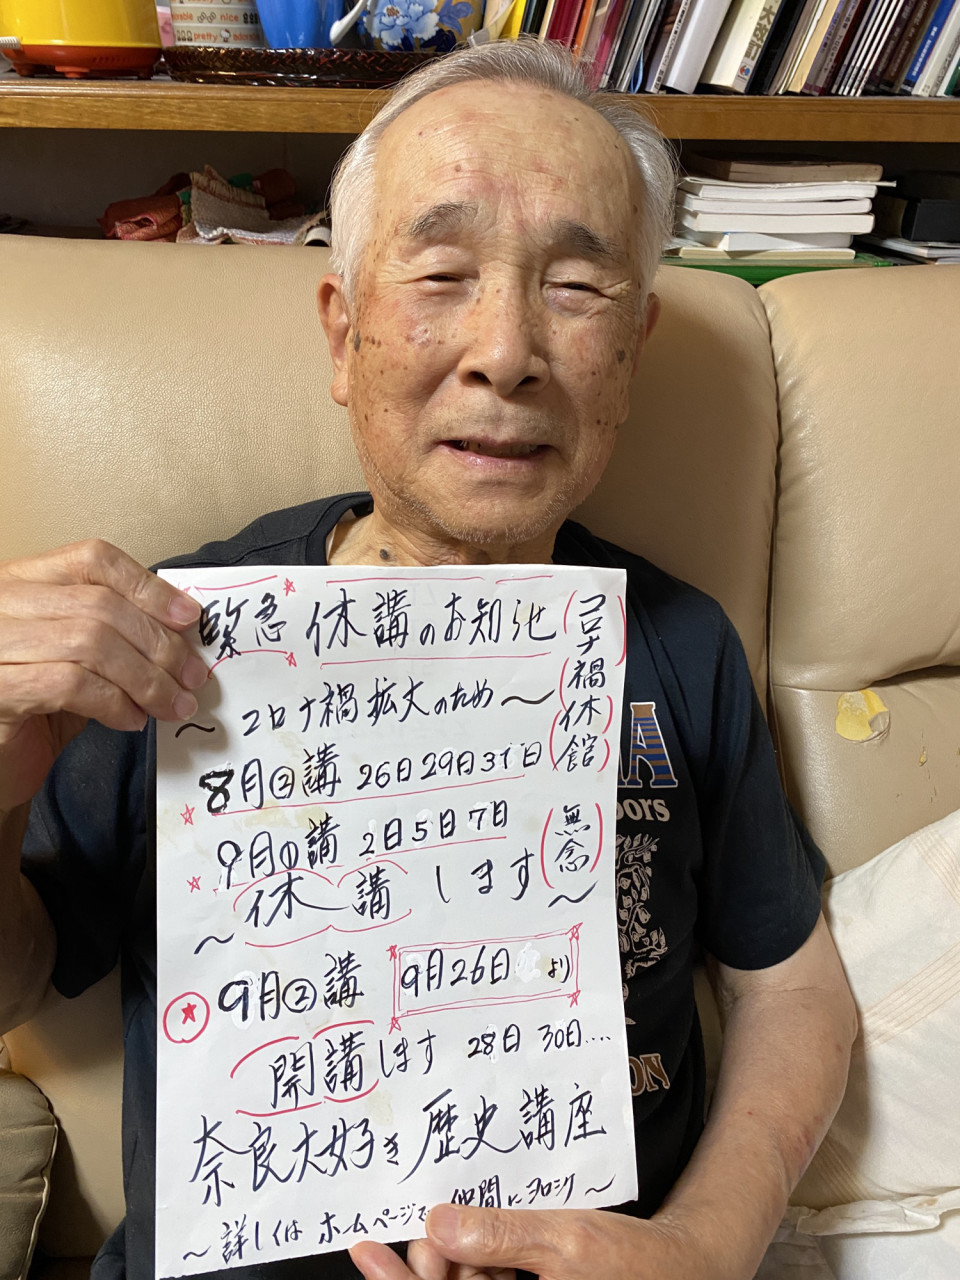 緊急 休講のお知らせ
(コロナ禍休館)
〜コロナ禍拡大のため〜
8月②講 26日29日31日
9月①講 2日5日7日
〜休講します〜
(無念)
9月②講 9月26日より
開講します 28日 30日....
奈良大好き歴史講座
〜詳しくはホームページで 仲間にヨロシク〜
nice
pretty